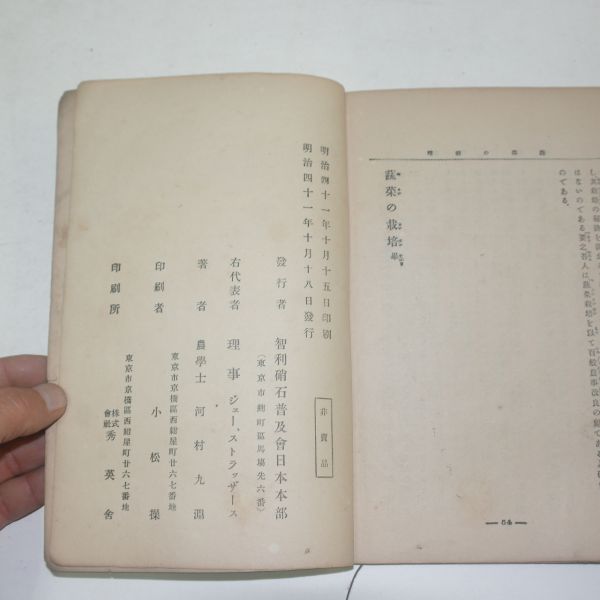 蔬菜の栽培
し、其栽培の
はないのである要之吾人は蔬菜栽培を以て百般農事改良の
のである。
蔬菜の栽培 畢
— 54 —
明治四十一年十月十五日印刷
明治四十一年十月十八日發行
非賣品
發行者 智利硝石普及會日本本部
(東京市麹町區馬場先六番)
右代表者 理事 ジェー、ストラッザース
著者 農學士 河村九淵
東京市京橋區西紺屋町廿六七番地
印刷者 小松操
東京市京橋區西紺屋町廿六七番地
印刷所 株式會社 秀英舍